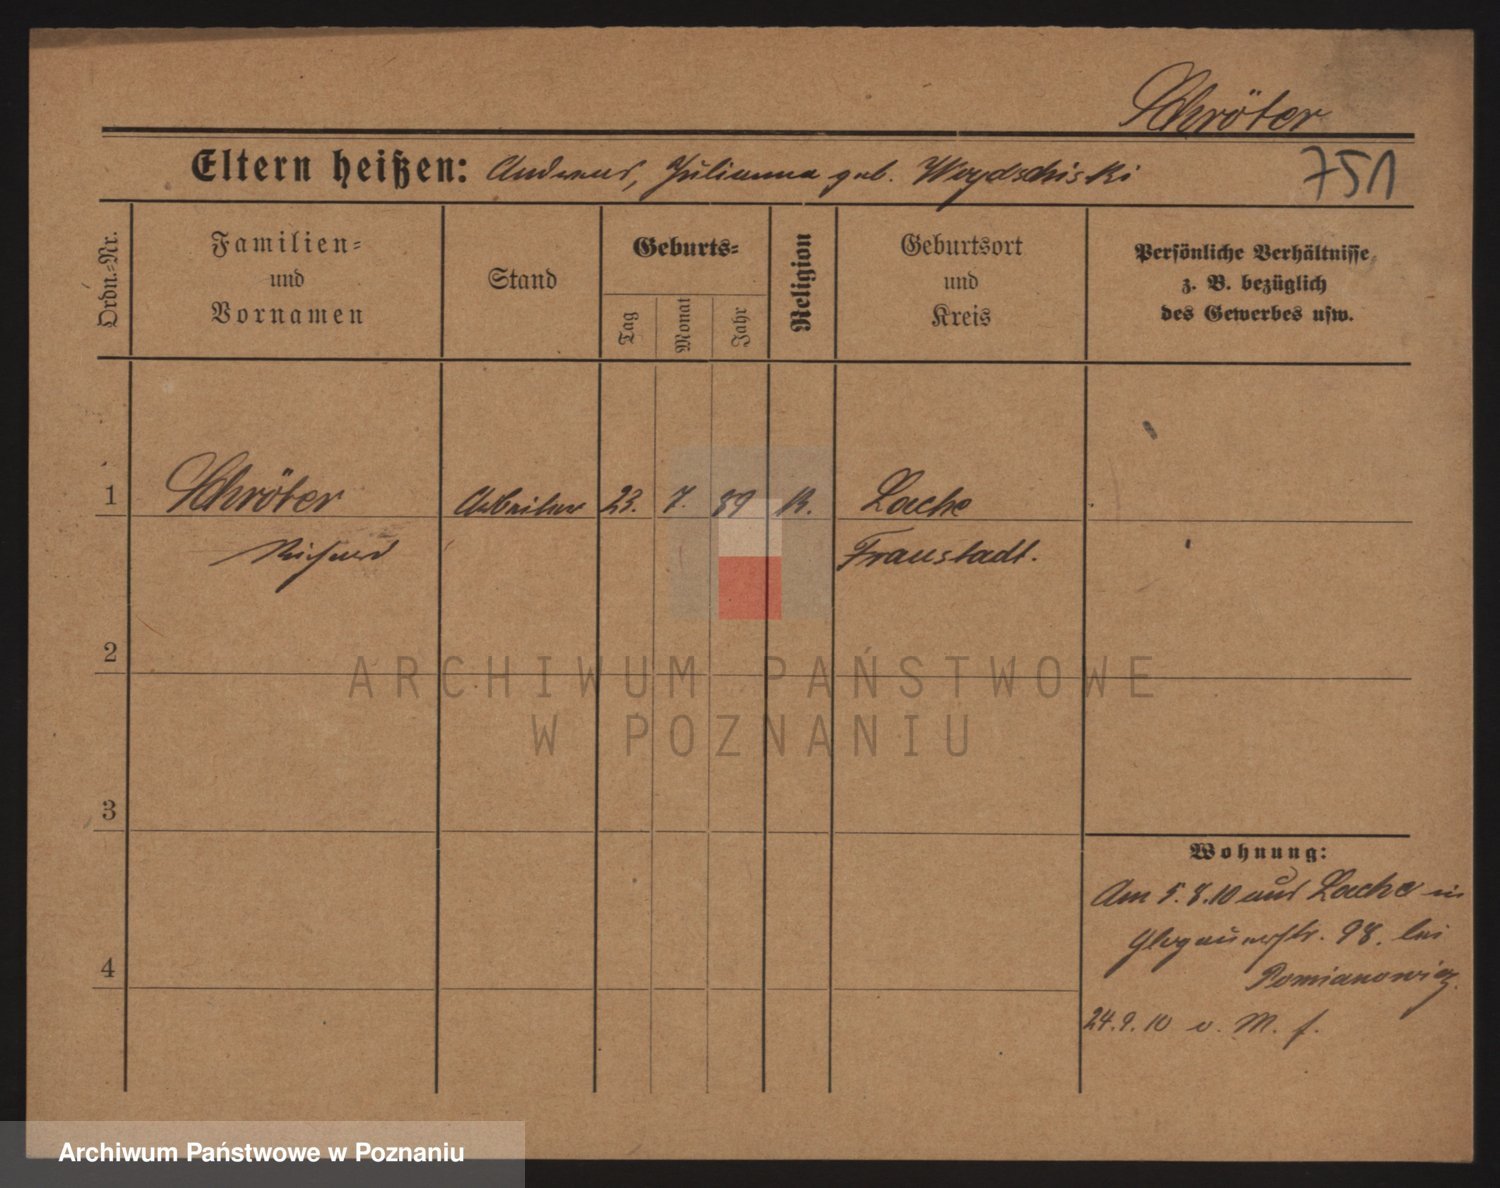 Schröter
Eltern heißen: Andreas, Julianna geb. Weydschiski
751
Ordn.-Nr.
Familien-
und
Vornamen
Stand
Geburts-
Tag
Monat
Jahr
Religion
Geburtsort
und
Kreis
Persönliche Verhältnisse
z. B. bezüglich
des Gewerbes usw.
1
Schröter
Arbeiter
23.
7.
89
K.
Lache
Richard
Fraustadt.
2
3
4
Wohnung:
Am 5.8.10 aus Lache in
Glogauerstr. 98. bei
Pomianowicz.
24.9.10 v. M. f.
ARCHIWUM PAŃSTWOWE
W POZNANIU
Archiwum Państwowe w Poznaniu